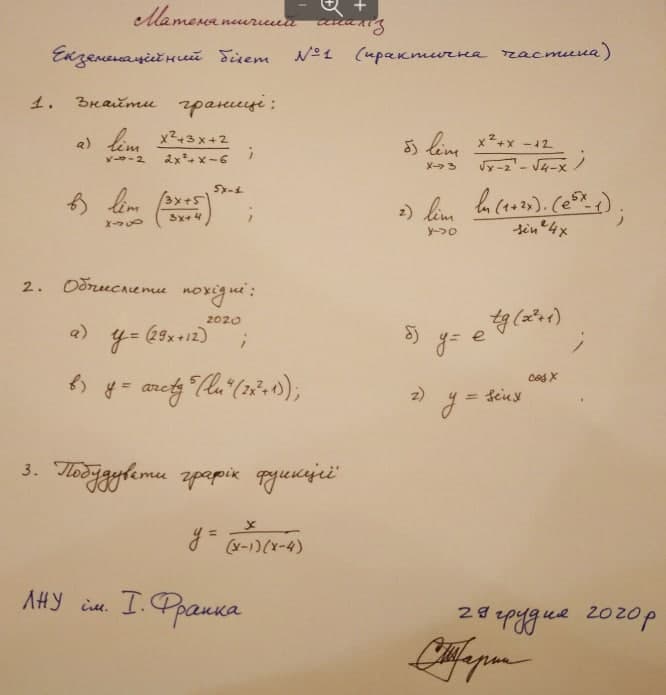 Математичний аналіз
Екзаменаційний білет №1 (практична частина)
1. Знайти границі:
а) lim x→-2 (x²+3x+2)/(2x²+x-6);
б) lim x→3 (x²+x-12)/(√(x-2) - √(4-x));
в) lim x→∞ ((3x+5)/(3x+4))^(5x-1);
г) lim x→0 (ln(1+2x)·(e^(5x)-1))/(sin²4x);
2. Обчислити похідні:
а) y=(29x+12)^2020;
б) y=e^(tg(x²+1));
в) y=arctg⁵(ln⁴(2x²+1));
г) y=sinx^(cosx).
3. Побудувати графік функції
y = x/((x-1)(x-4))
ЛНУ ім. І. Франка
29 грудня 2020 р